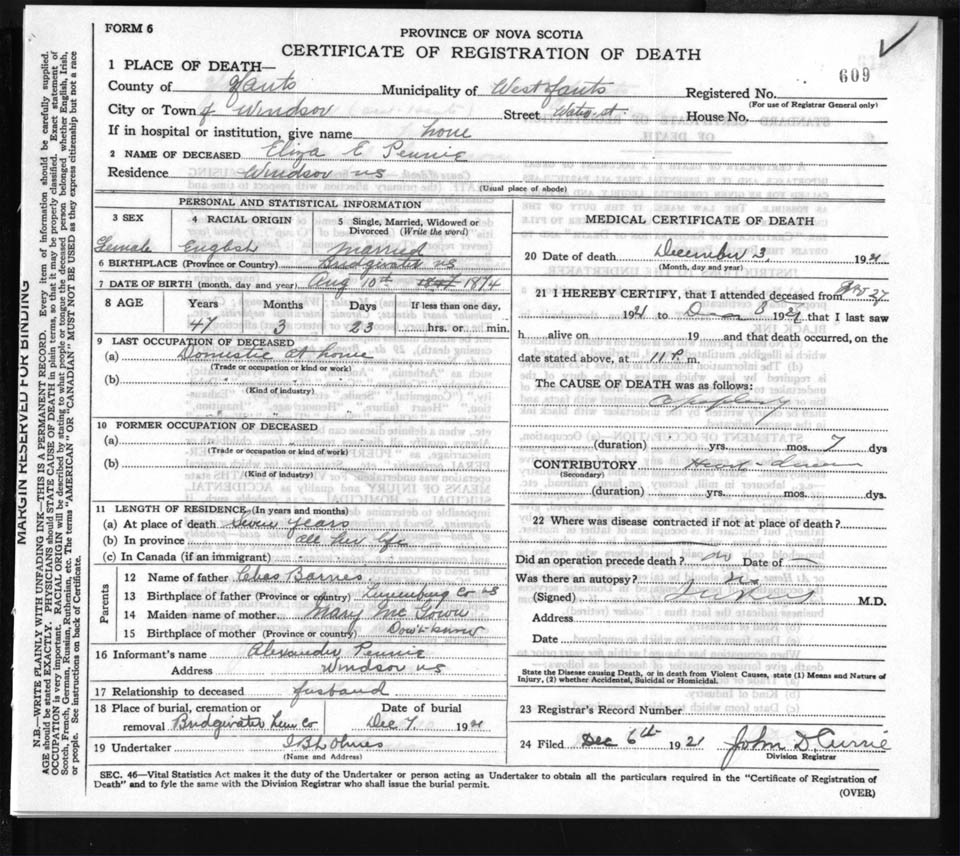 FORM 6
PROVINCE OF NOVA SCOTIA
CERTIFICATE OF REGISTRATION OF DEATH
609
1 PLACE OF DEATH—
County of Hants Municipality of West Hants Registered No.
(For use of Registrar General only)
City or Town of Windsor Street Water st. House No.
If in hospital or institution, give name home
2 NAME OF DECEASED Eliza E Pennie
Residence Windsor NS
(Usual place of abode)
PERSONAL AND STATISTICAL INFORMATION
3 SEX 4 RACIAL ORIGIN 5 Single, Married, Widowed or Divorced (Write the word)
Female English Married
6 BIRTHPLACE (Province or Country) Bridgwater NS
7 DATE OF BIRTH (month, day and year) Aug 10th 1874
8 AGE Years Months Days If less than one day,
47 3 23 hrs. or min.
9 LAST OCCUPATION OF DECEASED
(a) Domestic at home
(Trade or occupation or kind or work)
(b) " " "
(Kind of industry)
10 FORMER OCCUPATION OF DECEASED
(a)
(Trade or occupation or work)
(b)
(Kind of industry)
11 LENGTH OF RESIDENCE (In years and months)
(a) At place of death Seven years
(b) In province all her life
(c) In Canada (if an immigrant)
Parents
12 Name of father Chas Barnes
13 Birthplace of father (Province or country) Lunenburg Co NS
14 Maiden name of mother Mary McGown
15 Birthplace of mother (Province or country) Don't know
16 Informant's name Alexander Pennie
Address Windsor NS
17 Relationship to deceased husband
18 Place of burial, cremation or Date of burial
removal Bridgwater Lun Co Dec 7, 1921
19 Undertaker
(Name and Address)
MEDICAL CERTIFICATE OF DEATH
20 Date of death December 3 1921
(Month, day and year)
21 I HEREBY CERTIFY, that I attended deceased from Nov 27
1921 to 1921 that I last saw
h alive on 19 and that death occurred, on the
date stated above, at 11 P. m.
The CAUSE OF DEATH was as follows:
apoplexy
(duration) yrs. mos. 7 dys
CONTRIBUTORY Heart disease
(Secondary)
(duration) yrs. mos. dys.
22 Where was disease contracted if not at place of death?
Did an operation precede death? no Date of —
Was there an autopsy? No
(Signed) M.D.
Address
Date
State the Disease causing Death, or in death from Violent Causes, state (1) Means and Nature of
Injury, (2) whether Accidental, Suicidal or Homicidal.
23 Registrar's Record Number
24 Filed Dec 6th 1921 John D. Currie
Division Registrar
SEC. 46—Vital Statistics Act makes it the duty of the Undertaker or person acting as Undertaker to obtain all the particulars required in the "Certificate of Registration of
Death" and to fyle the same with the Division Registrar who shall issue the burial permit.
(OVER)
MARGIN RESERVED FOR BINDING
N.B.—WRITE PLAINLY WITH UNFADING INK—THIS IS A PERMANENT RECORD. Every item of information should be carefully supplied.
AGE should be stated EXACTLY. PHYSICIANS should STATE CAUSE OF DEATH in plain terms, so that it may be properly classified. Exact statement of
OCCUPATION is very important. RACIAL ORIGIN will be described by stating to what people or tongue the deceased person belonged whether English, Irish,
Scotch, French, German, Russian, Ruthenian, etc. The terms "AMERICAN" OR "CANADIAN" MUST NOT BE USED as they express citizenship but not a race
or people. See instructions on back of Certificate.